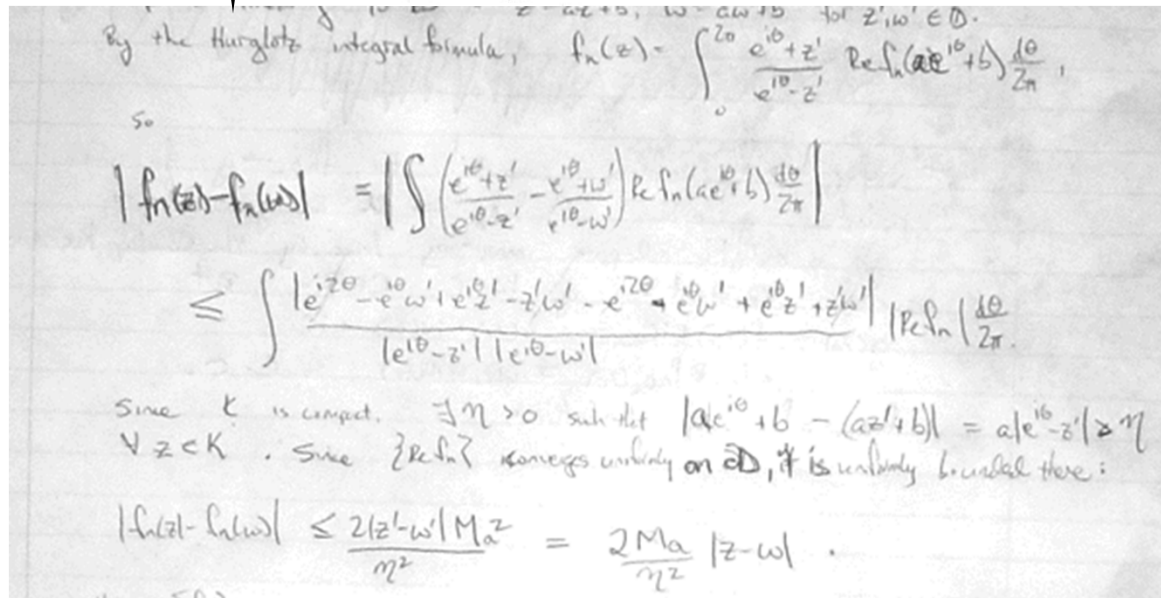 z = az'+b, w = aw'+b for z', w' ∈ D.
By the Hurglotz integral formula, fn(z) = ∫₀^{2π} (e^{iθ}+z')/(e^{iθ}-z') Re fn(ae^{iθ}+b) dθ/2π,
so
|fn(z)-fn(w)| = |∫ ((e^{iθ}+z')/(e^{iθ}-z') - (e^{iθ}+w')/(e^{iθ}-w')) Re fn(ae^{iθ}+b) dθ/2π|
≤ ∫ |e^{i2θ} - e^{iθ}w' + e^{iθ}z' - z'w' - e^{i2θ} - e^{iθ}w' + e^{iθ}z' + z'w'| / (|e^{iθ}-z'| |e^{iθ}-w'|) |Re fn| dθ/2π.
Since K is compact, ∃ η > 0 such that |ae^{iθ}+b - (az'+b)| = a|e^{iθ}-z'| ≥ η
∀ z ∈ K. Since {Re fn} converges uniformly on ∂D, it is uniformly bounded there:
|fn(z)-fn(w)| ≤ 2|z'-w'| M a²/η² = 2Ma/η² |z-w|.